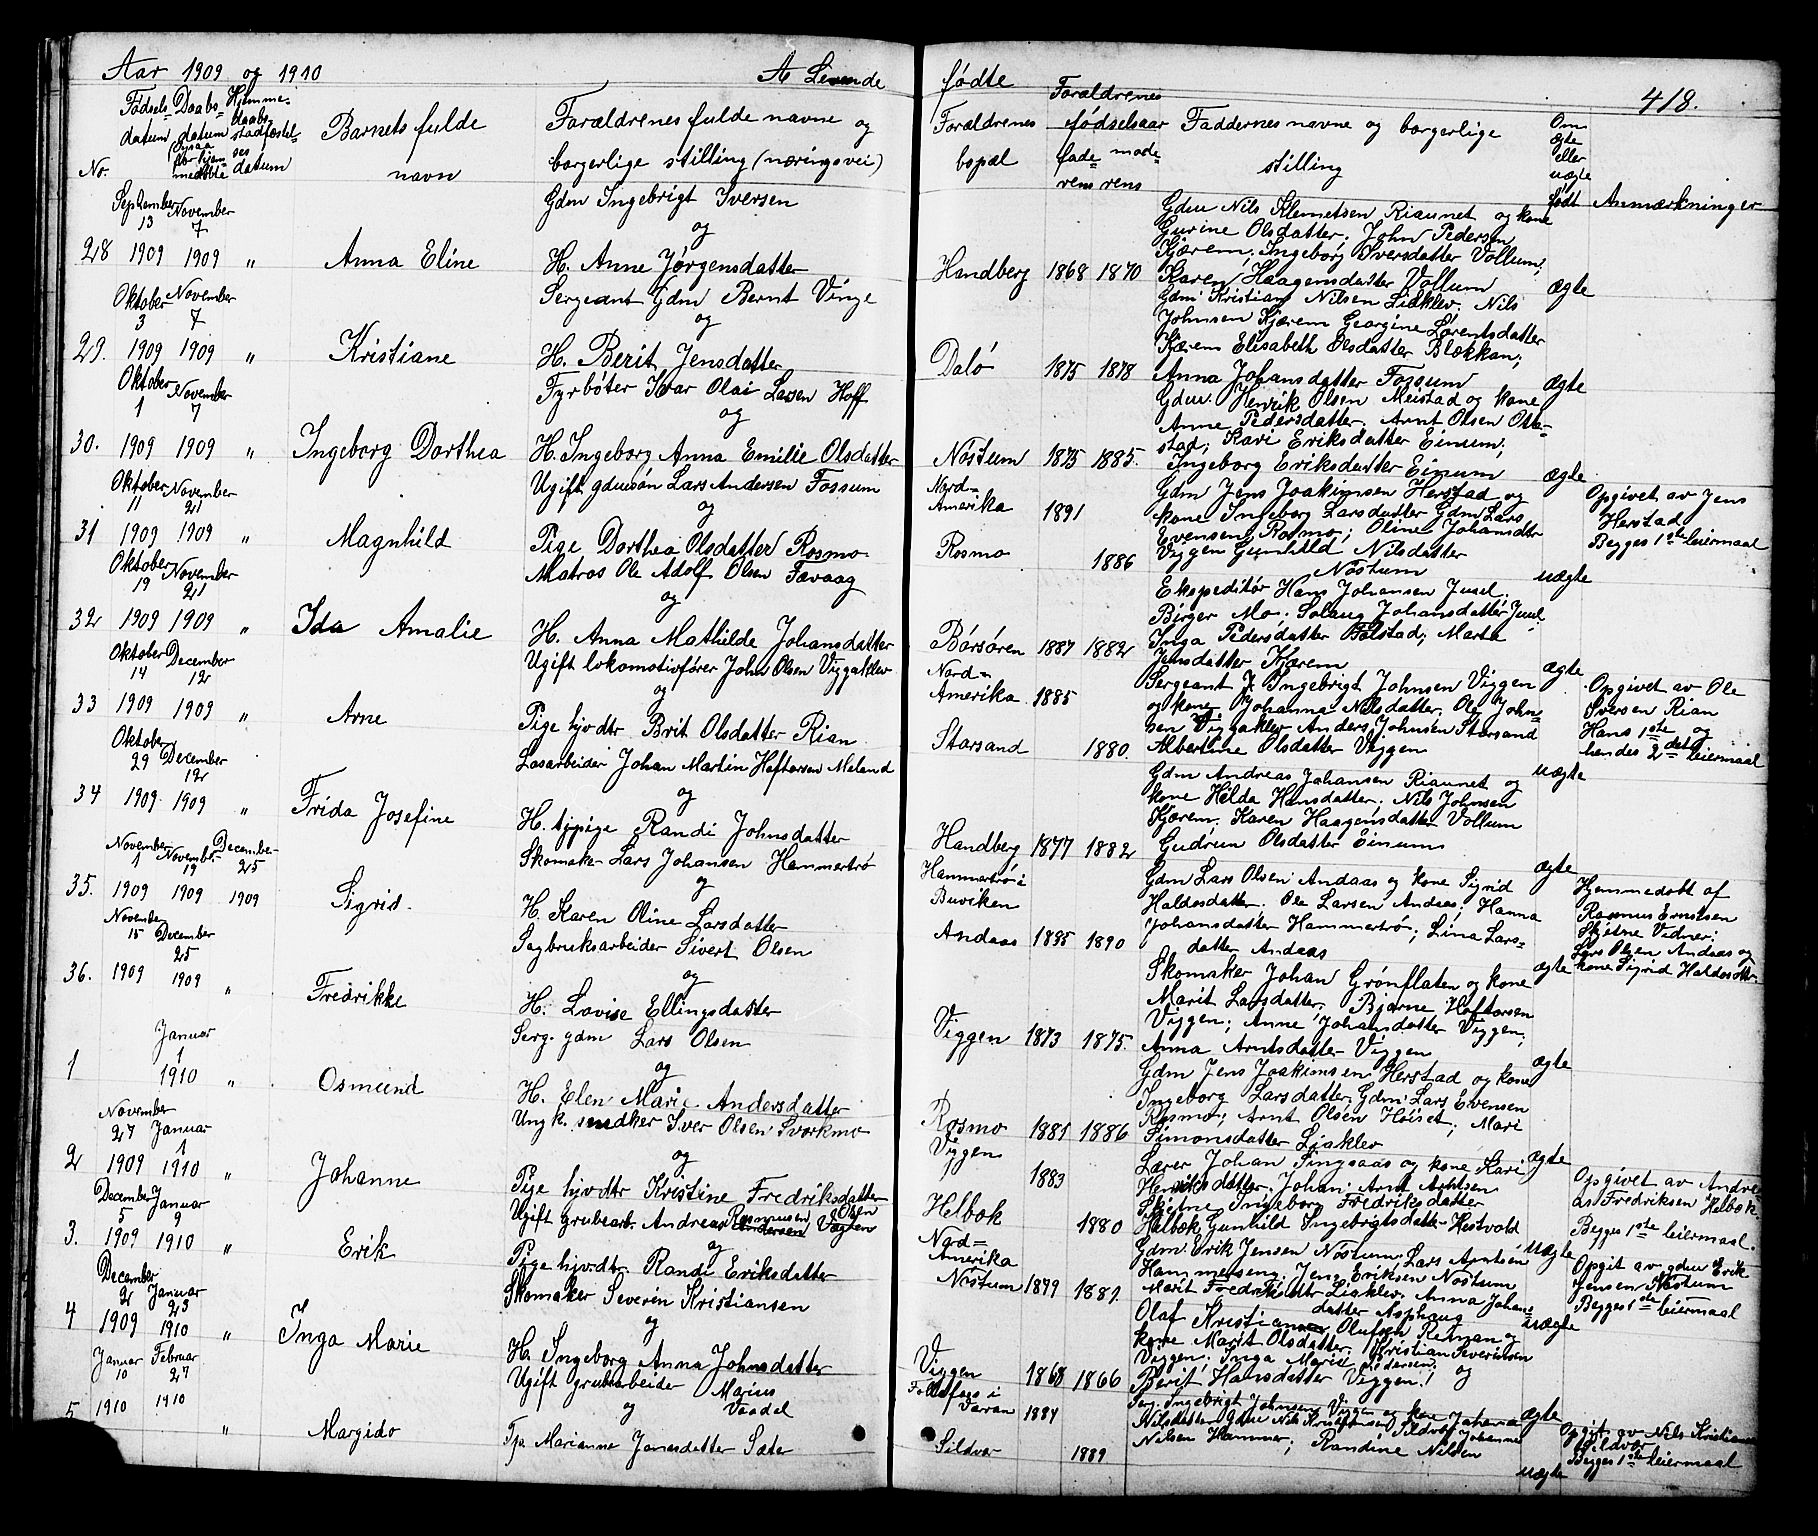 Aar 1909 og 1910
A. Levende
No.
Fødsels-datum
Daabs-datum
Hjemme-daabs stadfæstel-ses datum
Barnets fulde navn
Forældrenes fulde navne og
borgerlige stilling (næringsvei)
28 September 13 1909 November 7 1909 " Anna Eline
Gdm Ingebrigt Iversen
og
H. Anne Jørgensdatter
29. Oktober 3 1909 November 7 1909 " Kristiane
Sergeant Gdm Bernt Vinge
og
H. Berit Jensdatter
30. Oktober 1 1909 November 7 1909 " Ingeborg Dorthea
Fyrbøter Ivar Olai Larsen Hoff
og
H. Ingeborg Anna Emilie Olsdatter
31 Oktober 11 1909 November 21 1909 " Magnhild
Ugift gduesøn Lars Andersen Fossum
og
Pige Dorthea Olsdatter Rosmo
32 Oktober 19 1909 November 21 1909 " Ida Amalie
Matros Ole Adolf Olsen Fævaag
og
H. Anna Mathilde Johansdatter
33 Oktober 14 1909 December 12 1909 " Arne
Ugift lokomotivfører John Olsen Viggaklev
og
Pige hjv dtr Brit Olsdatter Rian
34 Oktober 29 1909 December 12 1909 " Frida Josefine
Løsarbeider Johan Martin Heftorsen Meland
og
H. tjpige Randi Johnsdatter
35. November 1 1909 November 19 1909 December 25 1909 Sigrid
Skomaker Lars Johansen Hammertrø
og
H. Karen Oline Larsdatter
36. November 15 1909 December 25 1909 " Fredrikke
Sagbruksarbeider Sivert Olsen
og
H. Lovise Ellingsdatter
1 Januar 1 1910 " Osmund
Serg. gdm Lars Olsen
og
H. Elen Marie Andersdatter
2 November 27 1909 Januar 1 1910 " Johanne
Ungk. snedker Iver Olsen Svorkmo
og
Pige hjv dtr Kristine Fredriksdatter
3. December 5 1909 Januar 9 1910 " Erik
Ugift grubearb. Andreas Rasmusen
og
Pige hjv. dtr. Randi Eriksdatter
4 December 2 1909 Januar 23 1910 " Inga Marie
Skomaker Severin Kristiansen
og
H. Ingeborg Anna Johnsdatter
5 Januar 10 1910 Februar 27 1910 " Margido
Ugift grubearbeider Marius
og Vaadel
Tp. Marianne Jonasdatter Sæter
fødte
418.
Forældrenes bopæl
Forældrenes fødselsaar
faderens moderens
Faddernes navne og borgerlige
stilling
Om ægte eller uægte født
Anmærkninger
Handberg 1868 1870
Gdm Nils Klemetsen Riaunet og kone
Gurine Olsdatter; John Pedersen
Kjærem; Ingeborg Iversdatter Vollum;
Karen Haagensdatter Vollum
ægte
Dalø 1875 1878
Gdm Kristian Nilsen Liaklev. Nils
Johnsen Kjærem Georgine Lorentsdatter
Kjærem Elisabeth Olsdatter Blekkan;
Anna Johansdatter Fossum
ægte
Nøstum 1875 1885.
Gdm. Henrik Olsen Meistad og kone
Anne Pedersdatter. Arnt Olsen Otte-
stad; Kari Eriksdatter Einum;
Ingeborg Eriksdatter Einum
ægte
Nord-
Amerika 1891
Rosmo 1886
Gdm Jens Joakimsen Herstad og
kone Ingeborg Larsdatter Gdm Lars
Evensen Rosmo; Oline Johansdtr
Viggen Gunhild Nilsdatter
Nøstum
uægte
Opgivet av Jens
Herstad
Begges 1ste leiermaal
Børsøren 1887 1882
Ekspeditør Hans Johansen Juul;
Birger Mo; Solaug Johansdatter Juul,
Inga Pedersdatter Bolstad; Marta
Jensdatter Kjærem
ægte
Nord-
Amerika 1885
Storsand 1880.
Sergeant J. Ingebrigt Johnsen Viggen
og kone Johanna Nilsdatter, Ole John-
sen Viggaklev Anders Johnsen Storsand
Albertine Olsdatter Viggen
uægte
Opgivet av Ole
Iversen Rian
Hans 1ste og
hendes 2det leiermaal
Handberg 1877 1882
Gdm Andreas Johansen Riaunet og
kone Hilda Hansdatter; Nils Johnsen
Kjærem. Karen Haagensdatter Vollum
Gudrun Olsdatter Einum
ægte
Hammertrø i
Buviken
Andaas 1885 1890
Gdm Lars Olsen Andaas og kone Sigrid
Haldosdatter. Ole Larsen Andaas; Hanna
Johansdatter Hammertrø; Lina Lars-
datter Andaas
ægte
Hjemmedøbt af
Rasmus Ernstsen
Skjetne Vidner:
Lars Olsen Andaas og
kone Sigrid Haldosdtr.
Viggen 1873 1875.
Skomaker Johan Grønflaten og kone
Marit Larsdatter; Bjarne Heftorsen
Viggen; Anne Johansdatter Viggen;
Anna Arntsdatter Viggen
ægte
Rosmo 1881 1886
Gdm Jens Joakimsen Herstad og kone
Ingeborg Larsdatter. Gdm Lars Evensen
Rosmo; Arnt Olsen Høiset; Mari
Simonsdatter Liaklev
ægte
Viggen 1883
Helbøk 1880
Lærer Johan Singsaas og kone Kari
Henriksdatter; Johan Arnt Arntsen
Skjetne Ingeborg Fredriksdatter
Helbøk Gunhild Ingebrigtsdatter Hestvold
uægte
Opgivet av Andre-
as Fredriksen Helbøk.
Begges 1ste leiermaal.
Nord-
Amerika
Nøstum 1879 1881.
Gdm. Erik Jensen Nøstum Lars Arntsen
Hammerseng Jens Eriksen Nøstum
Marit Fredriksdtr Liaklev. Anna Johans-
datter Asphaug
uægte
Opgit av gdm Erik
Jensen Nøstum
Begges 1ste leiermaal
Viggen 1868 1866
Olaf Kristian Olufsen Reitan og
kone Marit Olsdatter; Kristian Severinsen
Viggen; Inga Marie Pedersen; og
Berit Hansdatter Viggen!
ægte
Foldfjas i
Varan 1884
Sildvær 1889
Serg. Ingebrigt Johnsen Viggen og kone Johanna
Nilsdatter Gdm Nils Kristiansen Sildvær Johanne
Nilsen Hammer; Randine Nilsen
uægte
Opgit av Nils Kristiansen
Sildvær
Begges 1ste leiermaal